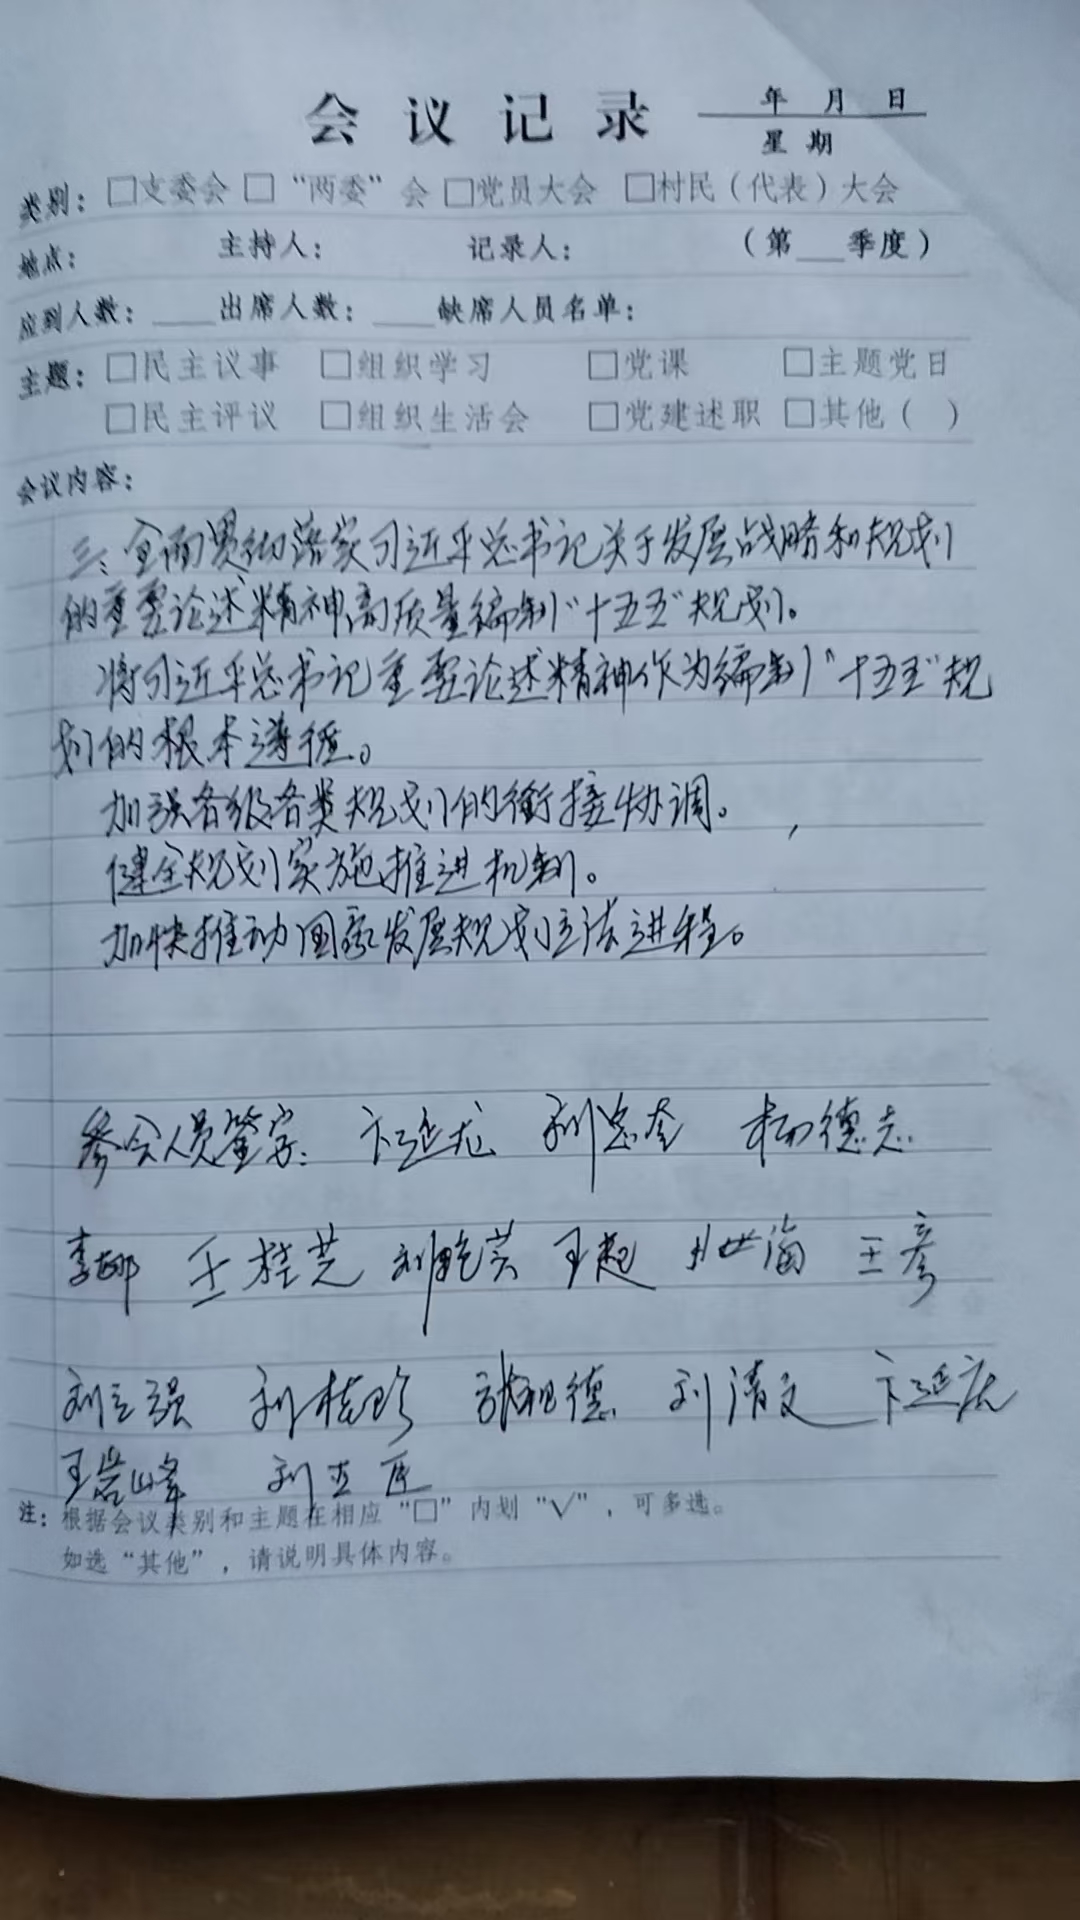 会议记录 年 月 日
星期
类别：□支委会 □“两委”会 □党员大会 □村民（代表）大会
地点： 主持人： 记录人： （第___季度）
应到人数：____出席人数：____缺席人员名单：
主题：□民主议事 □组织学习 □党课 □主题党日
□民主评议 □组织生活会 □党建述职 □其他（ ）
会议内容：
三、全面贯彻落实习近平总书记关于发展战略和规划
的重要论述精神，高质量编制“十五五”规划。
将习近平总书记重要论述精神作为编制“十五五”规
划的根本遵循。
加强各级各类规划的衔接协调。
健全规划实施推进机制。
加快推动国家发展规划立法进程。
参会人员签字：卞延龙 刘忠奎 杨德志
李娜 王桂芝 刘艳芸 王超 世海 王彦
刘立强 刘桂珍 张祖德 刘清文 卞延庆
王岩峰 刘立
注：根据会议类别和主题在相应“□”内划“√”，可多选。
如选“其他”，请说明具体内容。